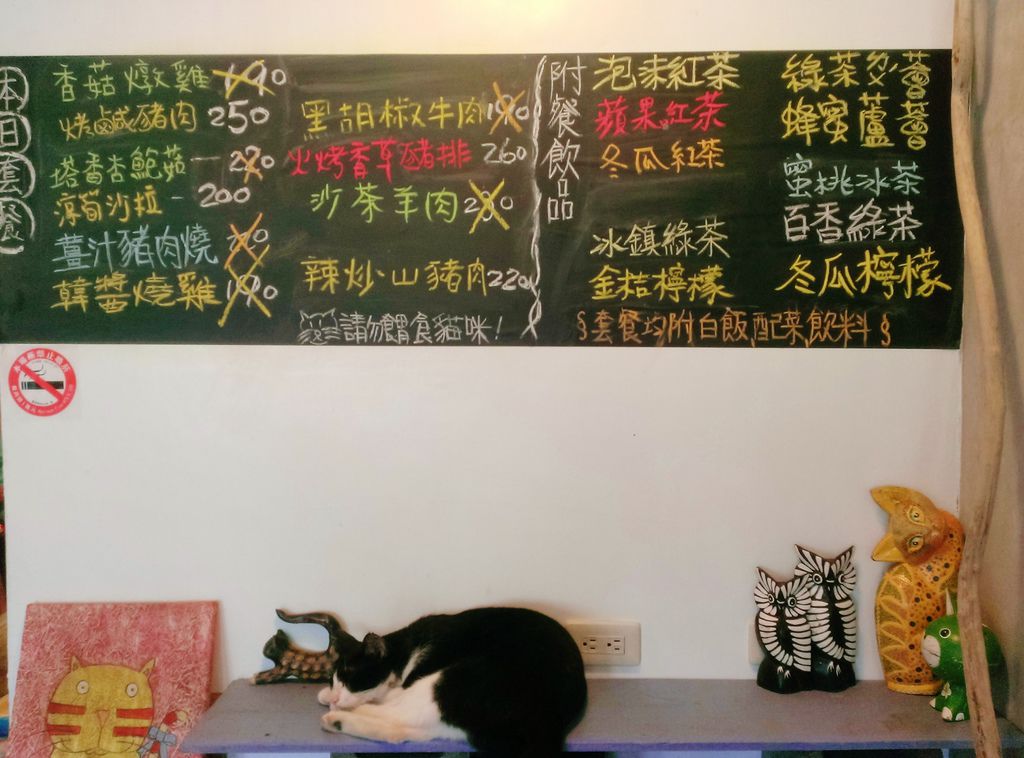 本日套餐
香菇燉雞 190
烤鹹豬肉 250
塔香杏鮑菇 - 220
涼筍沙拉 - 200
薑汁豬肉燒
韓醬燒雞 190
黑胡椒牛肉 190
火烤香草豬排 260
沙茶羊肉
辣炒山豬肉 220
請勿餵食貓咪!
附餐飲品
泡沫紅茶
蘋果紅茶
冬瓜紅茶
冰鎮綠茶
金桔檸檬
綠茶多
蜂蜜蘆薈
蜜桃冰茶
百香綠茶
冬瓜檸檬
§套餐均附白飯,配菜,飲料§